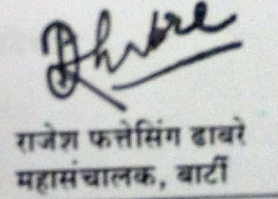 राजेश फत्तेसिंग ढाबरे
महासंचालक, बार्टी